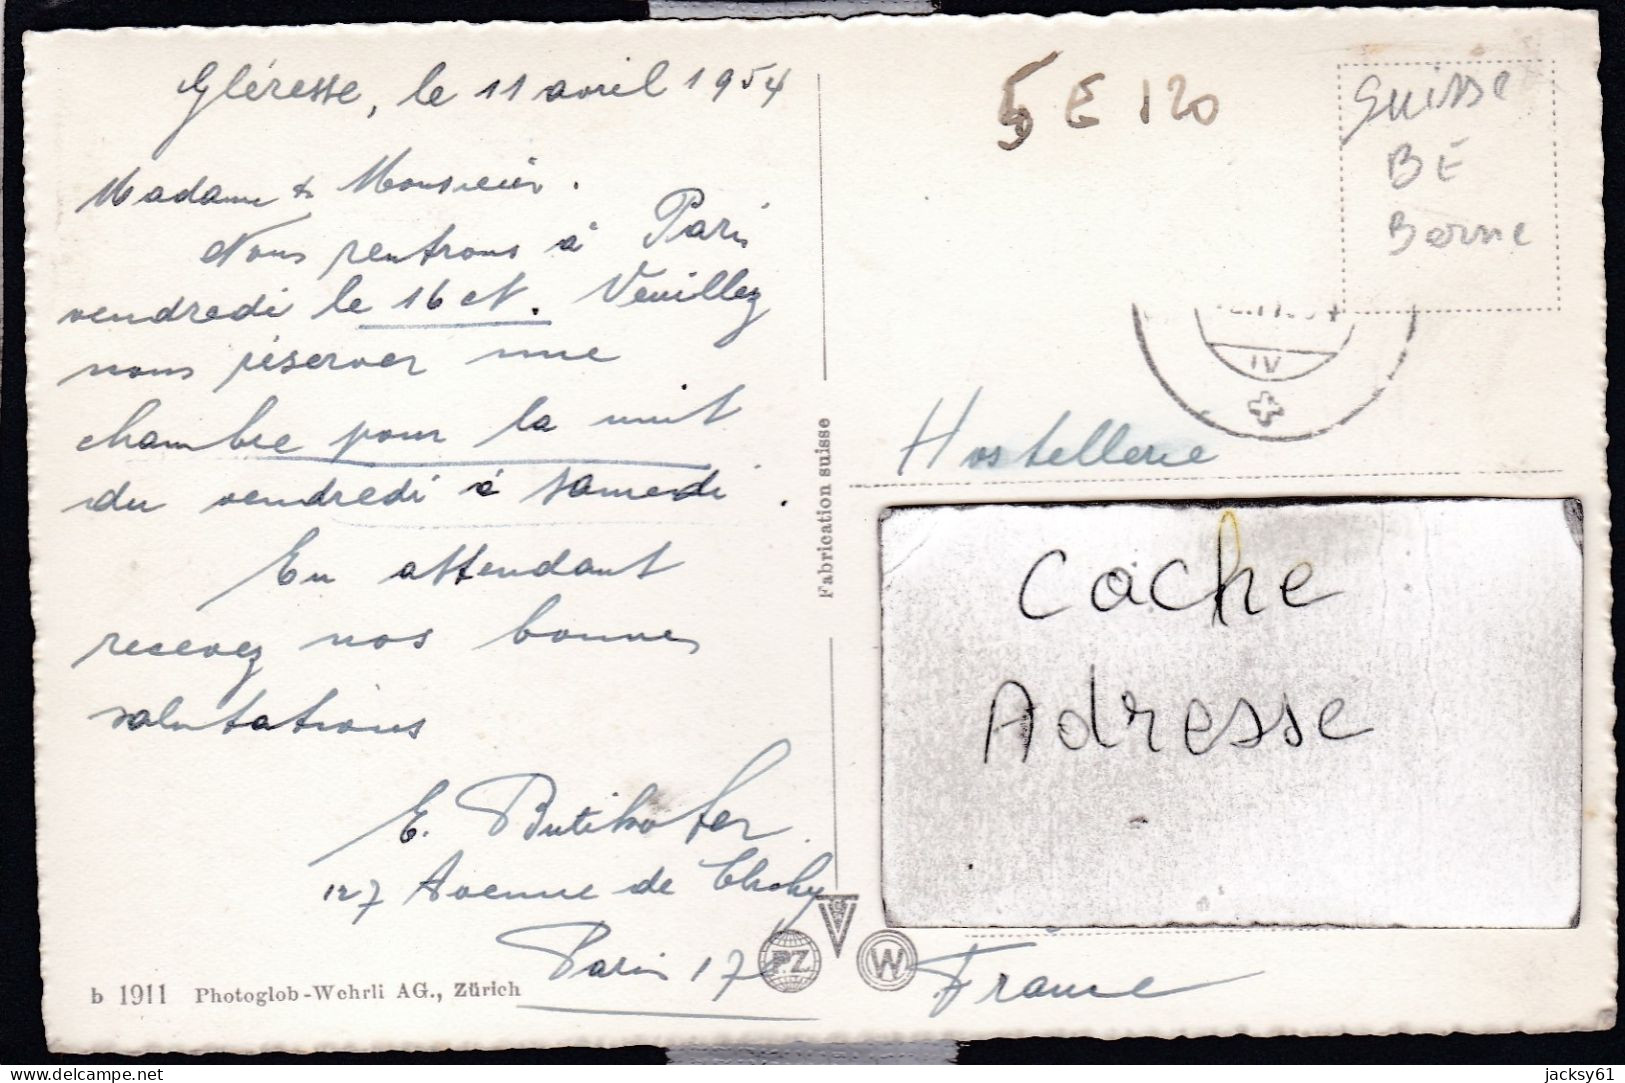 Gléresse, le 11 avril 1954
Madame & Monsieur.
Nous rentrons à Paris
vendredi le 16 ct. Veuillez
nous réserver une
chambre pour la nuit
du vendredi à samedi.
En attendant
recevez nos bonnes
salutations
E. Butikofer
127 Avenue de Clichy
Paris 17e
b 1911 Photoglob-Wehrli AG., Zürich
Fabrication suisse
5 E 120
Suisse
BE
Berne
IV
Hostellerie
Cache
Adresse
P.Z.
W
France
jacksy61